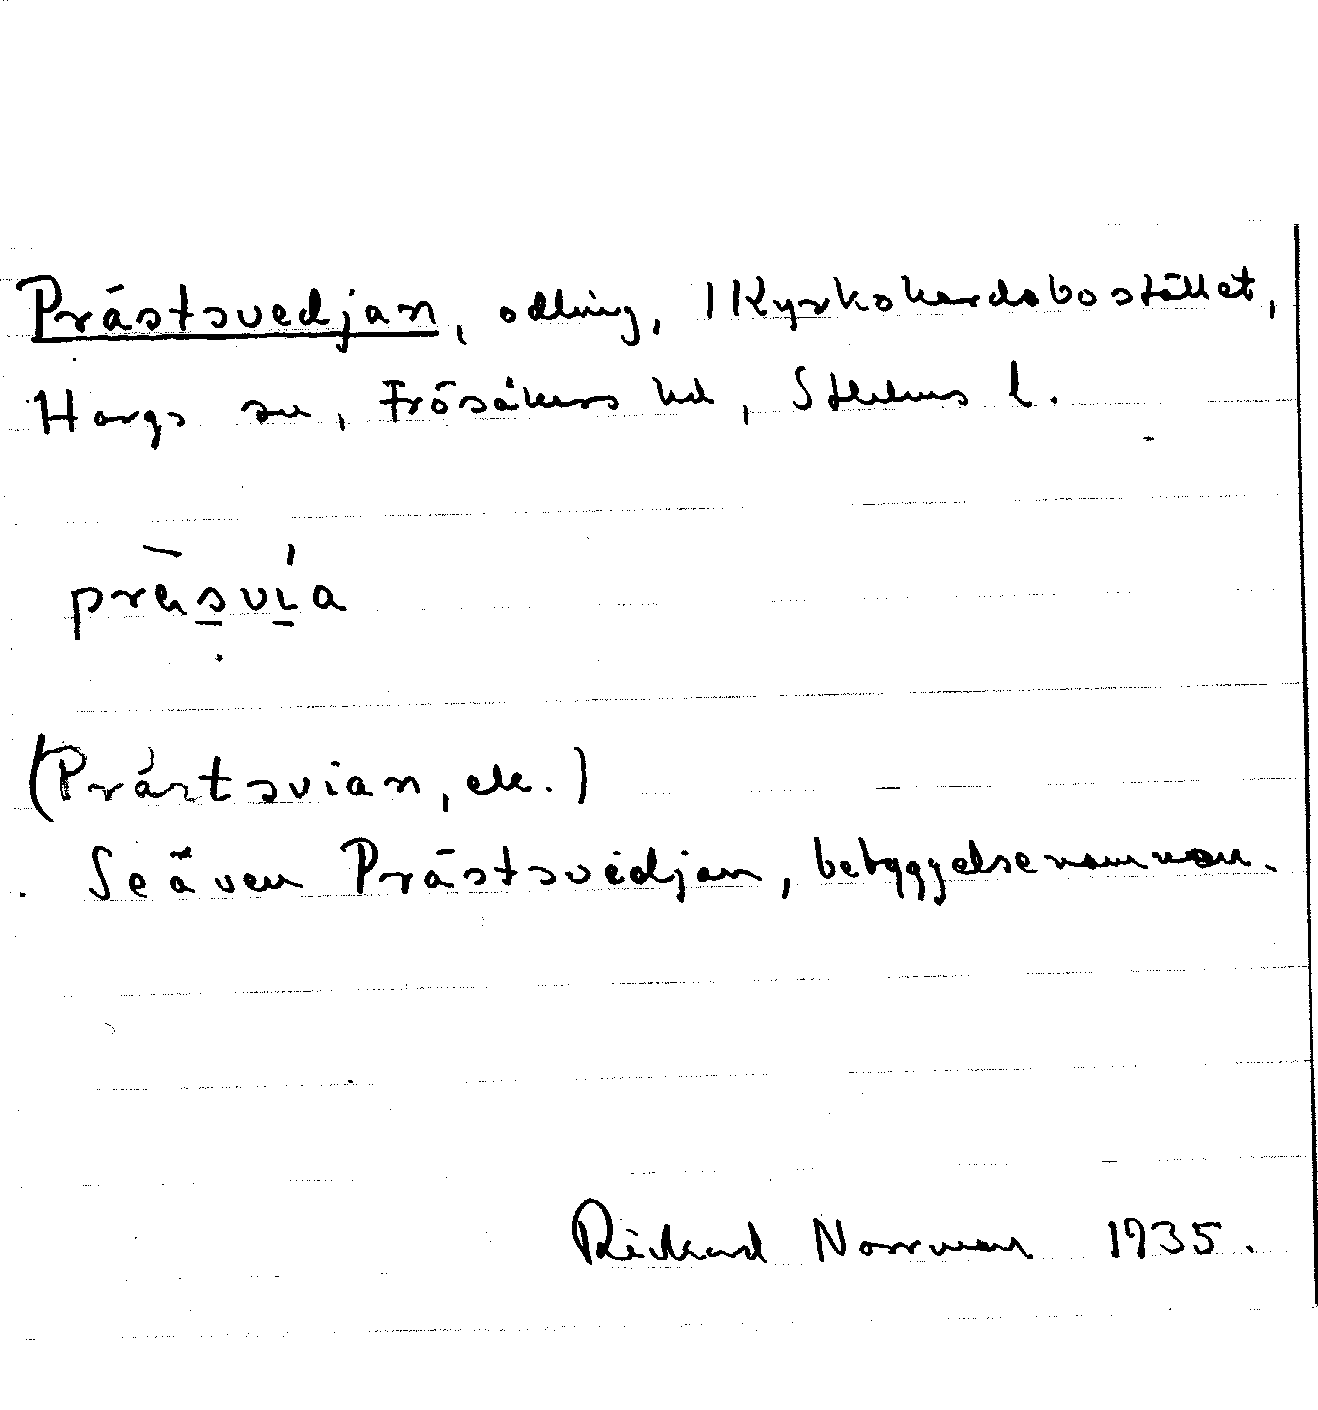 Prästsvedjan, odling, 1 Kyrkoherdebostället,
Hargs sn, Frösåkers hd, Sthlms l.
präsvia
(Prästsvian, ek.)
Se även Prästsvedjan, bebyggelsenamnen.
Rickard Norrman 1935.